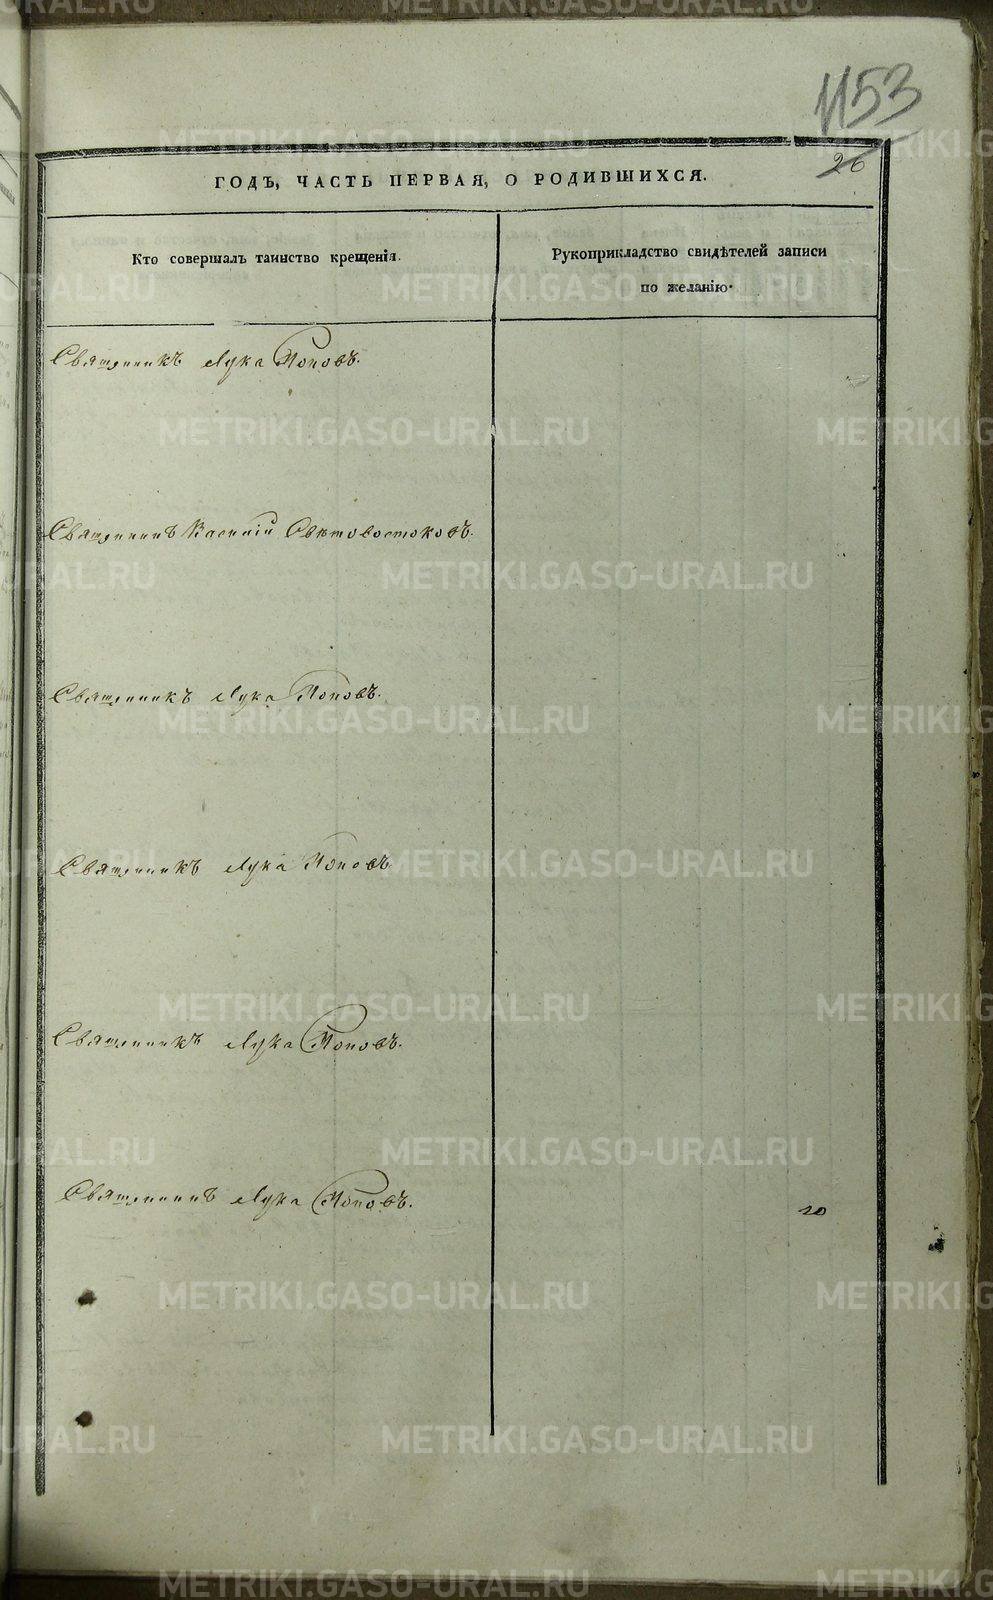 1153
26
ГОДЪ, ЧАСТЬ ПЕРВАЯ, О РОДИВШИХСЯ.
Кто совершалъ таинство крещенія.
Рукоприкладство свидѣтелей записи
по желанію.
Священникъ Лука Поповъ.
Священникъ Василій Свѣтовостоковъ.
Священникъ Лука Поповъ.
Священникъ Лука Поповъ
Священникъ Лука Поповъ.
Священникъ Лука Поповъ.
METRIKI.GASO-URAL.RU